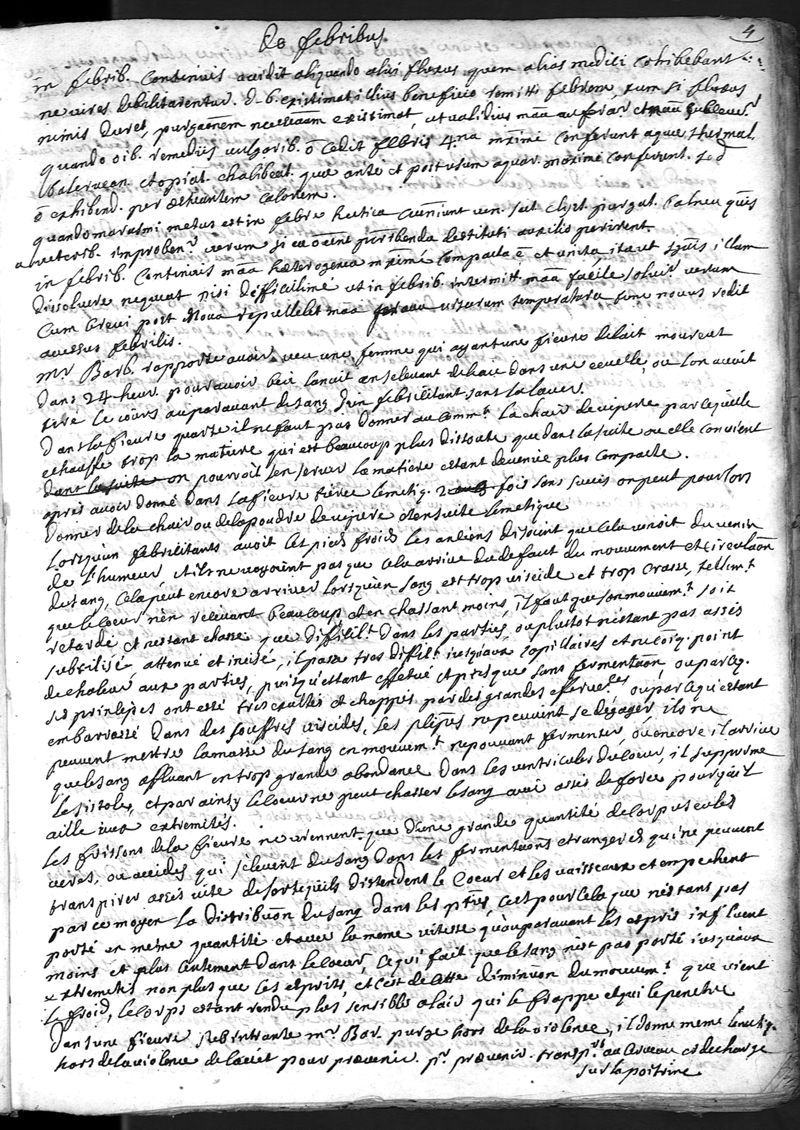 De febribus
4
in febrib. Continuis accidit aliquando alvi fluxus quem alias medici cohibebant
ne vires debilitarentur. D. b. existimat illius beneficio remitti febrem, tum si fluxus
nimis duret, purgaõnem necessariam existimat, ut validius mãa auferar. et
quando oib. remediis vulgarib. õ cedit febris 4.na maxime conferunt aquæ thermal.
et opiat. chalibeat. quæ ante et post usum aquar. maxime conferunt. sed
õ exhibend. per æstivantem calorem.
quando marasmi metus est in febre hectica ven. sect. clyst. purgat. balnea
a veterib. improben.r verum si præscribenda destituti auxilio perirent.
in febrib. Continuis mãa hæterogenea maxime compacta ẽ et unita ita ut illam
dissolvere nequeat nisi difficillime ut in febrib. intermitt. mãa facile solvir verum
Cum brevi post nova repullulet mãa viscerum temperatura sine novus redit
accessus febrilis.
Mr Barb. rapporte avoir veu une femme qui ayant une fievre de lait mourut
dans 24 heur. pour avoir beu dans une ecuelle ou l'on avoit
tiré le jours auparavant du sang d'un febricitant sans la laver.
Dans la fievre quarte il ne faut pas donner au comm.t la chair de vipere parcequ'elle
echauffe trop la matiere qui est beaucoup plus dissoute que dans la suite ou elle convient
on pourroit s'en servir la matiere estant devenue plus compacte.
apres avoir donné dans la fievre tierce lemetiq. 2 fois sans succes on peut pour lors
donner de la chair ou de la poudre de vipere et ensuite lemetique
Lorsqu'un febricitants avoit les pieds froids les anciens disoient que cela venoit du venin
de l'humeur, et ils ne voyoient pas que cela arrive du defaut du mouvement et circulaõn
du sang, Cela peut encore arriver lorsqu'un sang est trop viscide et trop crasse, tellem.t
que le coeur n'en relevant beaucoup et en chassant moins, il faut que son mouvem.t soit
retardé et n'estant chassé que difficil.t dans les parties, ou plustot n'estant pas assés
subtilisé attenué et incisé, il passe tres diffil.t jusqu'aux capillaires et ne coiq. point
de chaleur aux parties, puisqu'estant effetué et presque sans fermentaõn, ou parceq.
ses principes ont esté tres exaltés et chappés par des grandes efferve.ces ou parcequ'estant
embarrassé dans des souffres viscides, les ne peuvent se degager, ils ne
peuvent mettre la masse du sang en mouvem.t ne pouvant fermenter, ou encore il arrive
que le sang affluant en trop grande abondance dans les ventricules du coeur, il supprime
le sistole, et par ainsy le coeur ne peut chasser le sang avec assés de force pour qu'il
aille aux extremités.
Les frissons de la fievre ne viennent que d'une grande quantité de corpuscules
acres, ou acides qui s'elevent du sang dans les fermentaõns etrangeres qui ne peuvent
transpirer assés vite de sorte qu'ils distendent le Coeur et les vaisseaux et empechent
par ce moyen la distribuõn du sang dans les pties, c'est pour cela que n'estant pas
porté en meme quantité et avec la meme vitesse qu'auparavant les espris influent
moins et plus lentement dans le coeur, ce qui fait que le sang n'est pas porté jusqu'aux
extremités non plus que les esprits, et c'est de cette diminuõn du mouvem.t que vient
le froid, le corps estant rendu plus sensible a l'air qui le frappe et qui le penetre
Dans une fievre Subintrante mr Bar. purge hors de la violence, il donne meme lemetiq.
hors de la violence de l'accet pour prævenir. pr prævenir. transp.rt au cerveau et decharge
sur la poitrine